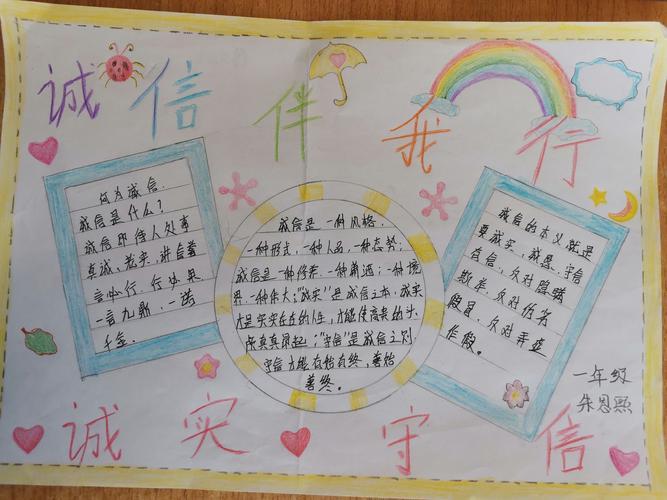 诚信伴我行
何为诚信
诚信是什么?
诚信即待人处事
真诚、老实、讲信誉
言必行、行必果
一言九鼎,一诺
千金。
诚信是一种风格.
一种形式,一种人品,一种态势;
诚信是一种修养,一种 一种境
界,一种伟大;"诚实"是诚信之本,诚实
才是实实在在的人生,才能使高昂的头,
真真 起;"守信"是诚信之则,
守信才能有始有终,善始
善终。
诚信的本义就是
要诚实、诚恳、守信
有信,反对隐瞒
欺诈、反对伪劣
假冒、反对弄虚
作假。
一年级
朱恩熙
诚实守信